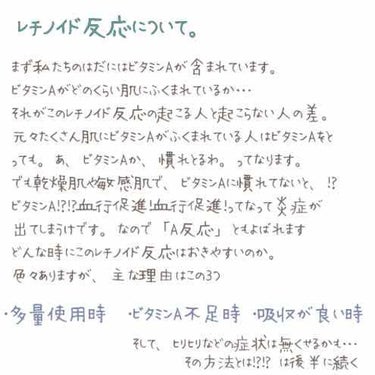 レチノイド反応について。
まず私たちのはだにはビタミンAが含まれています。
ビタミンAがどのくらい肌にふくまれているか…
それがこのレチノイド反応の起こる人と起こらない人の差。
元々たくさん肌にビタミンAがふくまれている人はビタミンAをと
っても。あ、ビタミンAか、慣れとるわ。ってなります。
でも乾燥肌や敏感肌で、ビタミンAに慣れてないと、!?
ビタミンA!?!?血行促進!血行促進!ってなって炎症が
出てしまうけです。なので「A反応」ともよばれます
どんな時にこのレチノイド反応はおきやすいのか。
色々ありますが、主な理由はこの3つ
・多量使用時 ・ビタミンA不足時 ・吸収が良い時
そして、ヒリヒリなどの症状は無くせるかも…
その方法とは!?!? は後半に続く